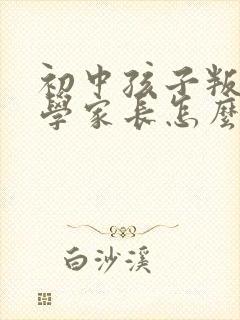 初中孩子叛
學家長怎麼
白沙溪